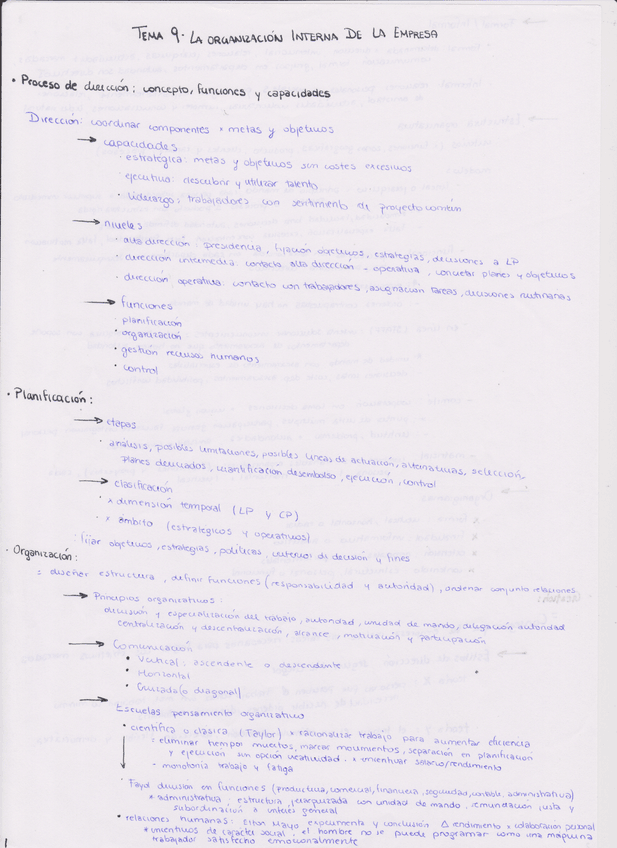 TEMA 9. LA ORGANIZACIÓN INTERNA DE LA EMPRESA
• Proceso de dirección: concepto, funciones y capacidades
Dirección: coordinar componentes x metas y objetivos
→ capacidades
· estratégica: metas y objetivos sin costes excesivos
· ejecutiva: descubrir y utilizar talento
· liderazgo: trabajadores con sentimiento de proyecto común
→ niveles
· alta dirección: presidencia, fijación objetivos, estrategias, decisiones a LP
· dirección intermedia: contacto alta dirección - operativa, concretar planes y objetivos
· dirección operativa: contacto con trabajadores, asignación tareas, decisiones rutinarias
→ funciones
· planificación
· organización
· gestión recursos humanos
· control
· Planificación:
→ etapas
· análisis, posibles limitaciones, posibles líneas de actuación, alternativas, selección,
planes derivados, cuantificación desembolso, ejecución, control
→ clasificación
· x dimensión temporal (LP y CP)
· x ámbito (estratégicos y operativos)
: fijar objetivos, estrategias, políticas, criterios de decisión y fines
· Organización:
: diseñar estructura, definir funciones (responsabilidad y autoridad), ordenar conjunto relaciones
→ Principios organizativos:
división y especialización del trabajo, autoridad, unidad de mando, delegación autoridad
centralización y descentralización, alcance, motivación y participación
→ Comunicación
• Vertical: ascendente o descendente
• Horizontal
• Cruzada (o diagonal)
→ Escuelas pensamiento organizativo
• científica o clásica (Taylor) x racionalizar trabajo para aumentar eficiencia
= eliminar tiempos muertos, marcar movimientos, separación en planificación
y ejecución sin opción creatividad. x incentivar salario/rendimiento
- monotonía trabajo y fatiga
· Fayol división en funciones (productiva, comercial, financiera, seguridad, contable, administrativa)
* administrativa: estructura jerarquizada con unidad de mando, remuneración justa y
subordinación a interés general
• relaciones humanas: Elton Mayo experimenta y conclusión Δ rendimiento x colaboración personal
* incentivos de carácter social: el hombre no se puede programar como una máquina
trabajador satisfecho emocionalmente